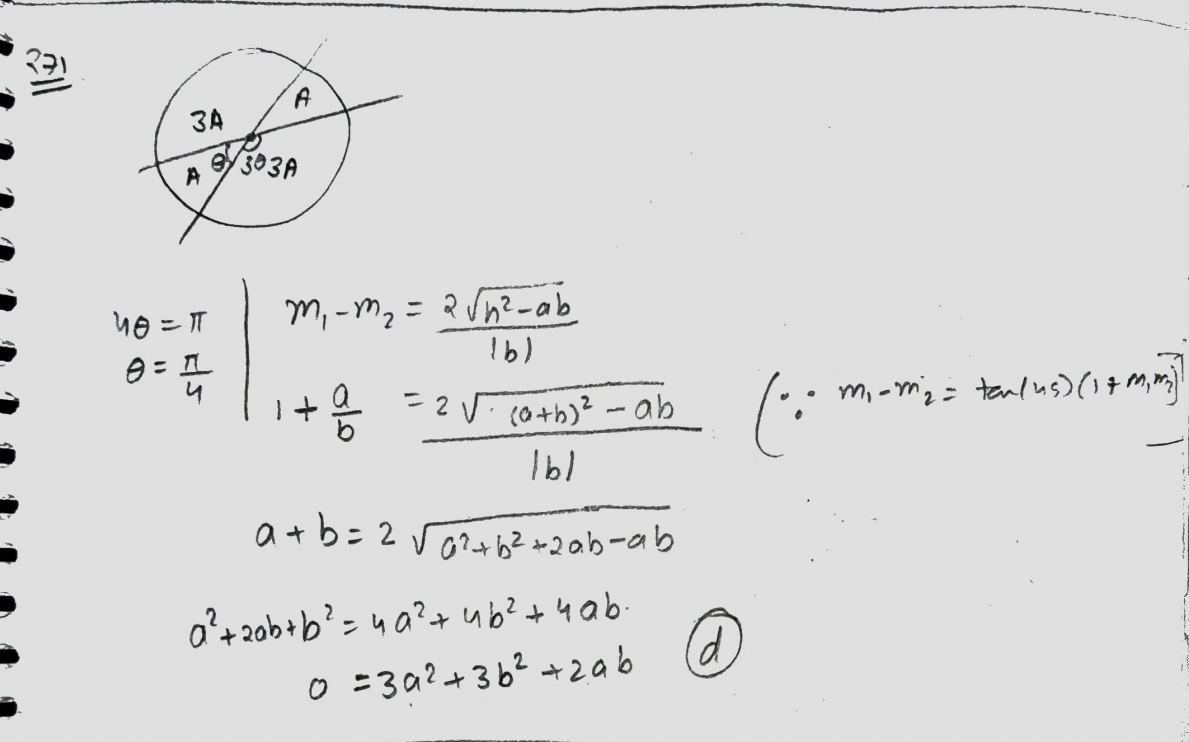 271
3A A
A θ 3θ 3A
4θ = π
θ = π/4
m₁ - m₂ = 2√(h² - ab) / |b|
1 + a/b = 2√((a+b)² - ab) / |b|
(∵ m₁ - m₂ = tan(45)(1 + m₁m₂)]
a + b = 2√(a² + b² + 2ab - ab)
a² + 2ab + b² = 4a² + 4b² + 4ab.
0 = 3a² + 3b² + 2ab
d